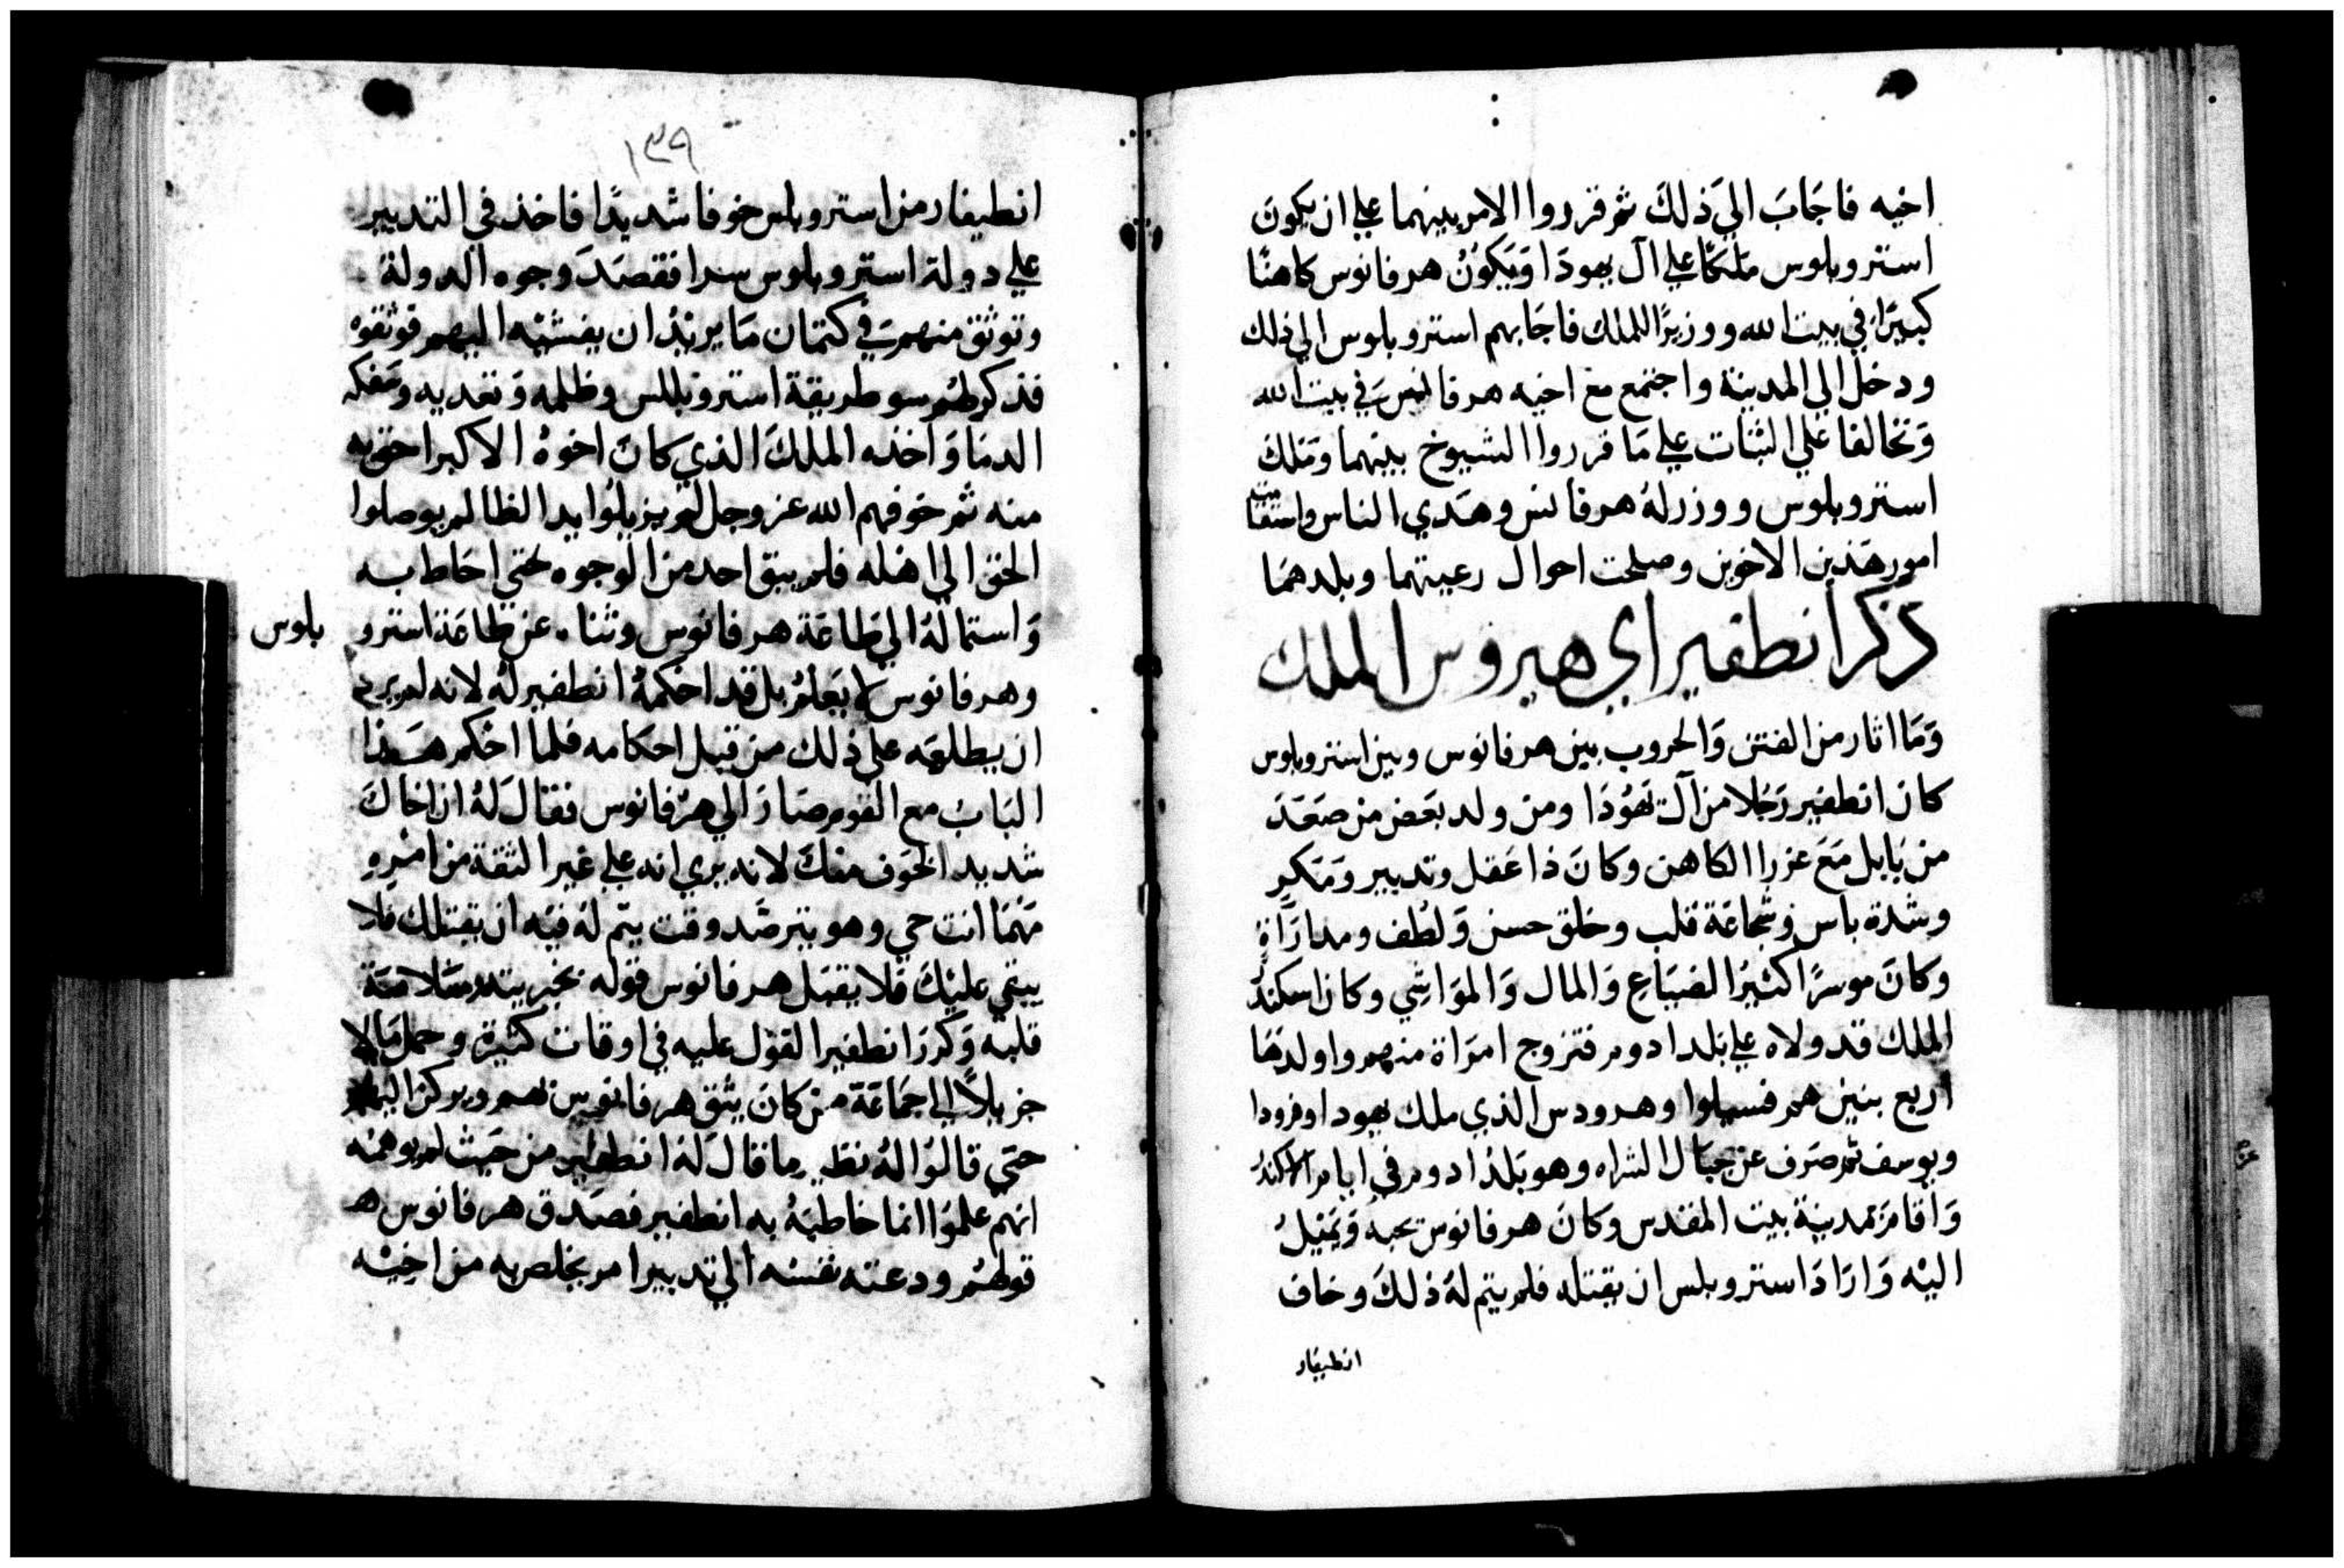 اخيه فاجَابَ الىَ ذلكَ ثم قرروا الامر بينهما على ان يكونَ
استروبلوس ملكًا على آل يهودَا وَيَكوُنُ هرفانوس كاهنًا
كبيرًا في بيت الله ووزيرًا للملك فاجَابهم استروبلوس الى ذلك
ودخل الى المدينة واجتمع مع اخيه هرفانس في بيت الله
وَتحَالفا عَلى الثبات على مَا قرروا الشيوخ بينهما ومَلك
استروبلوس ووزر لهُ هرفانس وهَدي الناس واستقامت
امور هَذين الاخوين وصلحت احوال رعيتهما وبلدهمَا
ذكر انطفير ابي هيروس الملك
وَمَا اثار من الفتن وَالحروب بين هرفانوس وبين استروبلوس
كان انطفير رَجُلا من آل يَهوُدَا ومن ولد بعَض من صَعَدَ
من بَابل مَعَ عزرا الكاهن وكانَ ذا عَقل وتدبير وَمَكرٍ
وشدة باس وشجاعَة قلب وخلق حسن وَلطُف ومدارَاةٍ
وَكانَ موسرًا كثيرُ الضيَاعِ وَالمال وَالموَاشِي وكان اسكندُ
الملك قد ولاه على بَلد ادوم فتزوج امرَاة منهم واولدهَا
اربع بنين هم فسيلوا وهرودس الذي ملك يهودا وفرودا
ويوسف ثم صَرف عن جبَال الشراه وهو بَلد ادوم في ايام الاكندُ
وَاقامَ بمَدينة بيت المقدس وَكانَ هرفانوس يحبه وَيَميْلُ
اليْه وَارَادَ استروبلس ان يقتله فلم يتم لهُ ذلكَ وخاف
انطيفار
١٣٩
انطيفار من استروبلس خوفا شديدًا فاخذ في التدبير
على دولة استروبلوس سرا فقصَدَ وجوه الدولة
وتوثق منهم في كتمان مَا يريدُ ان يفشيْه اليهم فوثقوه
فذكر لهُم سو طريقة استروبللس وظلمه وَتعديه وسَفكه
الدمَا وَاخذه الملكَ الذي كانَ اخوهُ الاكبر احق به
منه ثم خوفهم الله عز وجل ان لم يزيلوُا يد الظالم ويوصلوا
الحق الى اهْله فلم يبق احد من الوجوه حَتي احَاط به
وَاستمالهُ الى طَاعَة هرفانوس وثناه عن طاعَة استرو بلوس
وهرفانوس لا يَعلمُ بل قد احْكمهُ انطفير لهُ لانه لم يرد
ان يطلعَه على ذلك من قبل احكامه فلما احْكم هَذا
البَابَ مع القوم صَارَ الى هرْفانوس فقال لَهُ ان اخَاكَ
شديد الخوَف منكَ لانه يري انه على غير الثقة من امْرِهِ
مَهْمَا انت حي وهو يترصَد وقت يتم لهُ فيْه ان يقتلك فلا
يبقي عليْكَ فلا يقبَل هرفانوس قوله بخيريته وسَلامَة
قلبه وَكررَ انطفير القوْل عليه في اوقات كثيرة وحمل مَالا
جزيلاً الي جمَاعَة من كانَ يثق هرفانوس بهم ويركن اليهم
حتي قالوُا لهُ نظير ما قال لَهُ انطفير من حيَث لم يوهمْه
انهم علموُا انما خاطبَهُ به انطفير فصَدق هرفانوس
قولهُم ودعته نفسْه الي تدبير امر يخلص به من اخِيْه